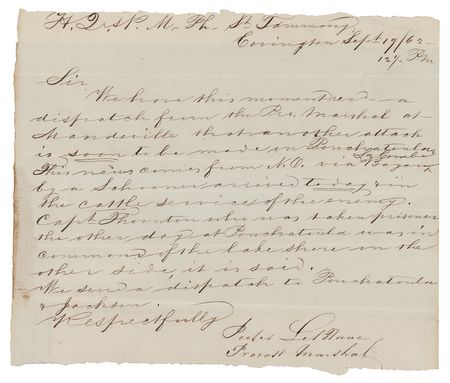 H. Qrs P. M. Ph. St Tammany
Covington Sept 19/62
12½ PM
Sir
We have this moment recd - a
dispatch from the Pro. Marshal at
Mandeville that another attack
is soon to be made on Ponchatoula
This news comes from N.O. via
by a Schooner arrived today & in
the cattle service of the enemy.
Capt Thornton who was taken prisoner
the other day at Ponchatoula was in
command of the lake shore on the
other side, it is said.
We send a dispatch to Ponchatoula
& Jackson.
Respectfully
Jules
Provost Marshal